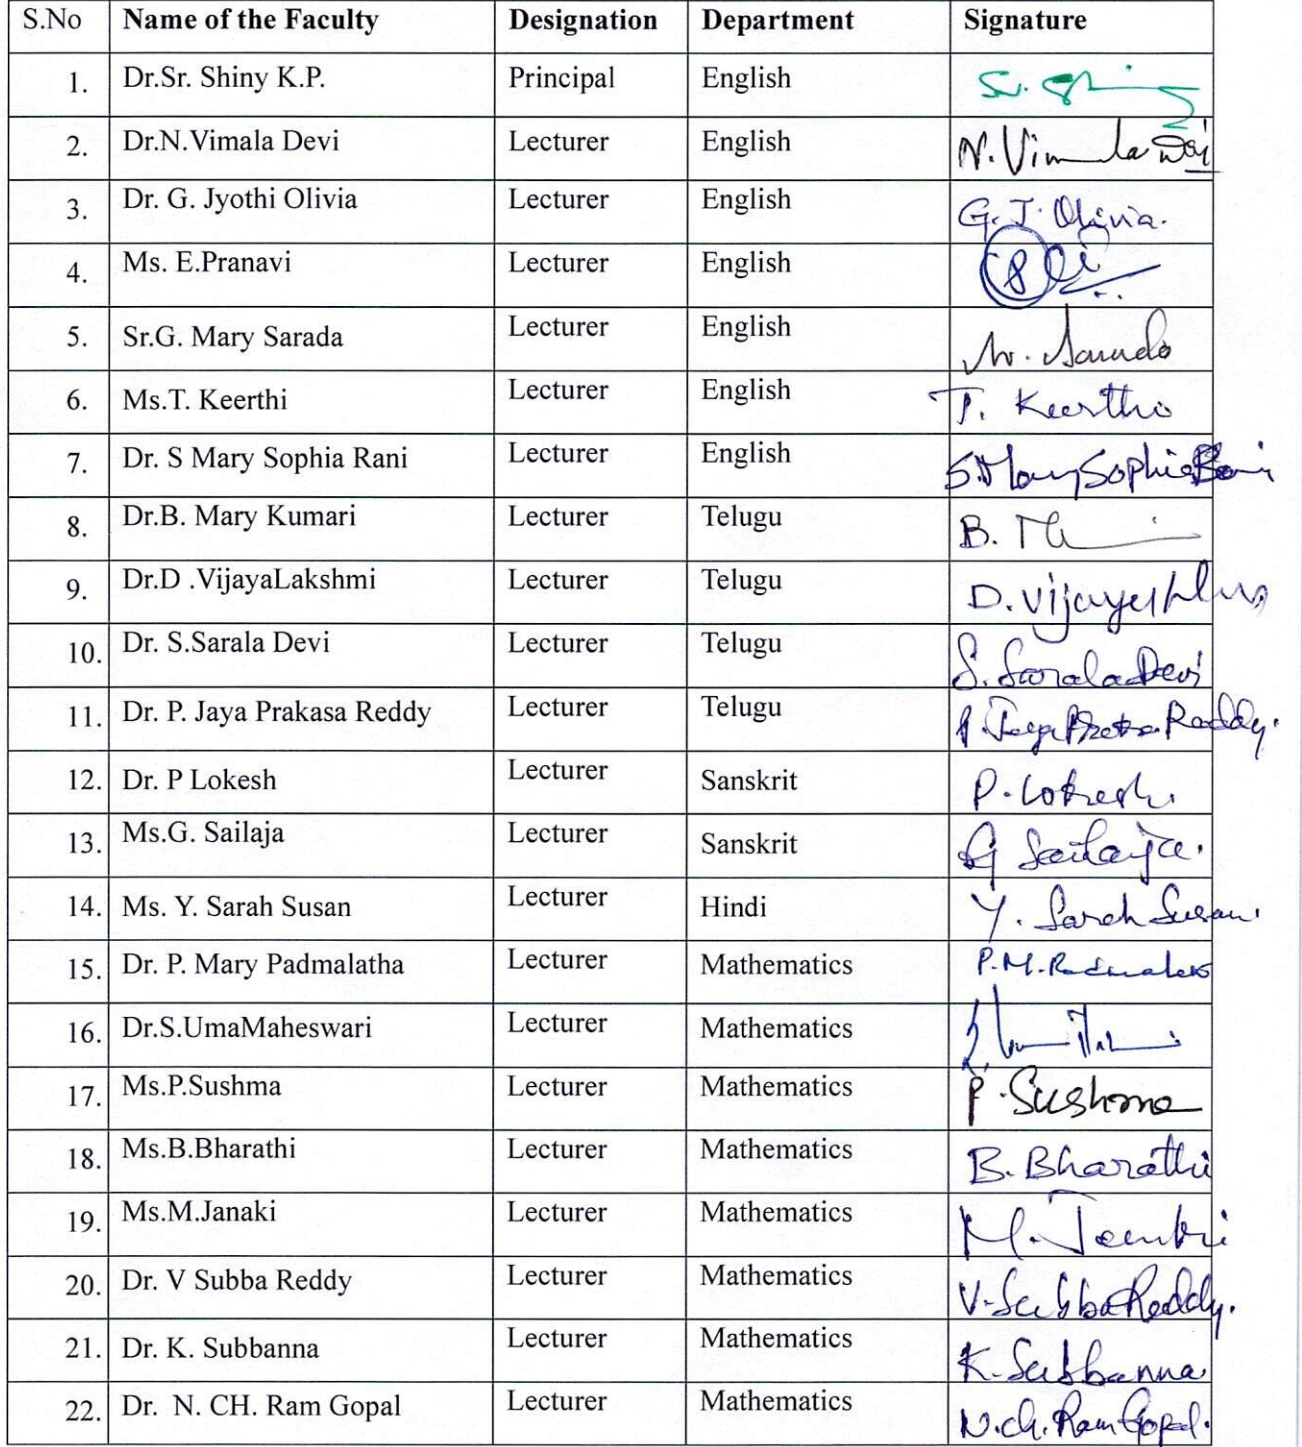 S.No Name of the Faculty Designation Department Signature
1. Dr.Sr. Shiny K.P. Principal English Sr.
2. Dr.N.Vimala Devi Lecturer English N. Vimala Devi
3. Dr. G. Jyothi Olivia Lecturer English G. J. Olivia.
4. Ms. E.Pranavi Lecturer English
5. Sr.G. Mary Sarada Lecturer English
6. Ms.T. Keerthi Lecturer English T. Keerthi
7. Dr. S Mary Sophia Rani Lecturer English S. Mary Sophia Rani
8. Dr.B. Mary Kumari Lecturer Telugu B.
9. Dr.D .VijayaLakshmi Lecturer Telugu D.
10. Dr. S.Sarala Devi Lecturer Telugu S. Sarala Devi
11. Dr. P. Jaya Prakasa Reddy Lecturer Telugu Reddy.
12. Dr. P Lokesh Lecturer Sanskrit P. Lokesh
13. Ms.G. Sailaja Lecturer Sanskrit G Sailaja.
14. Ms. Y. Sarah Susan Lecturer Hindi Y. Sarah Susan.
15. Dr. P. Mary Padmalatha Lecturer Mathematics P.M. Padmalatha
16. Dr.S.UmaMaheswari Lecturer Mathematics
17. Ms.P.Sushma Lecturer Mathematics P. Sushma
18. Ms.B.Bharathi Lecturer Mathematics B. Bharathi
19. Ms.M.Janaki Lecturer Mathematics M. Janaki
20. Dr. V Subba Reddy Lecturer Mathematics V. Subba Reddy.
21. Dr. K. Subbanna Lecturer Mathematics K. Subbanna.
22. Dr. N. CH. Ram Gopal Lecturer Mathematics N. Ch. Ram Gopal.